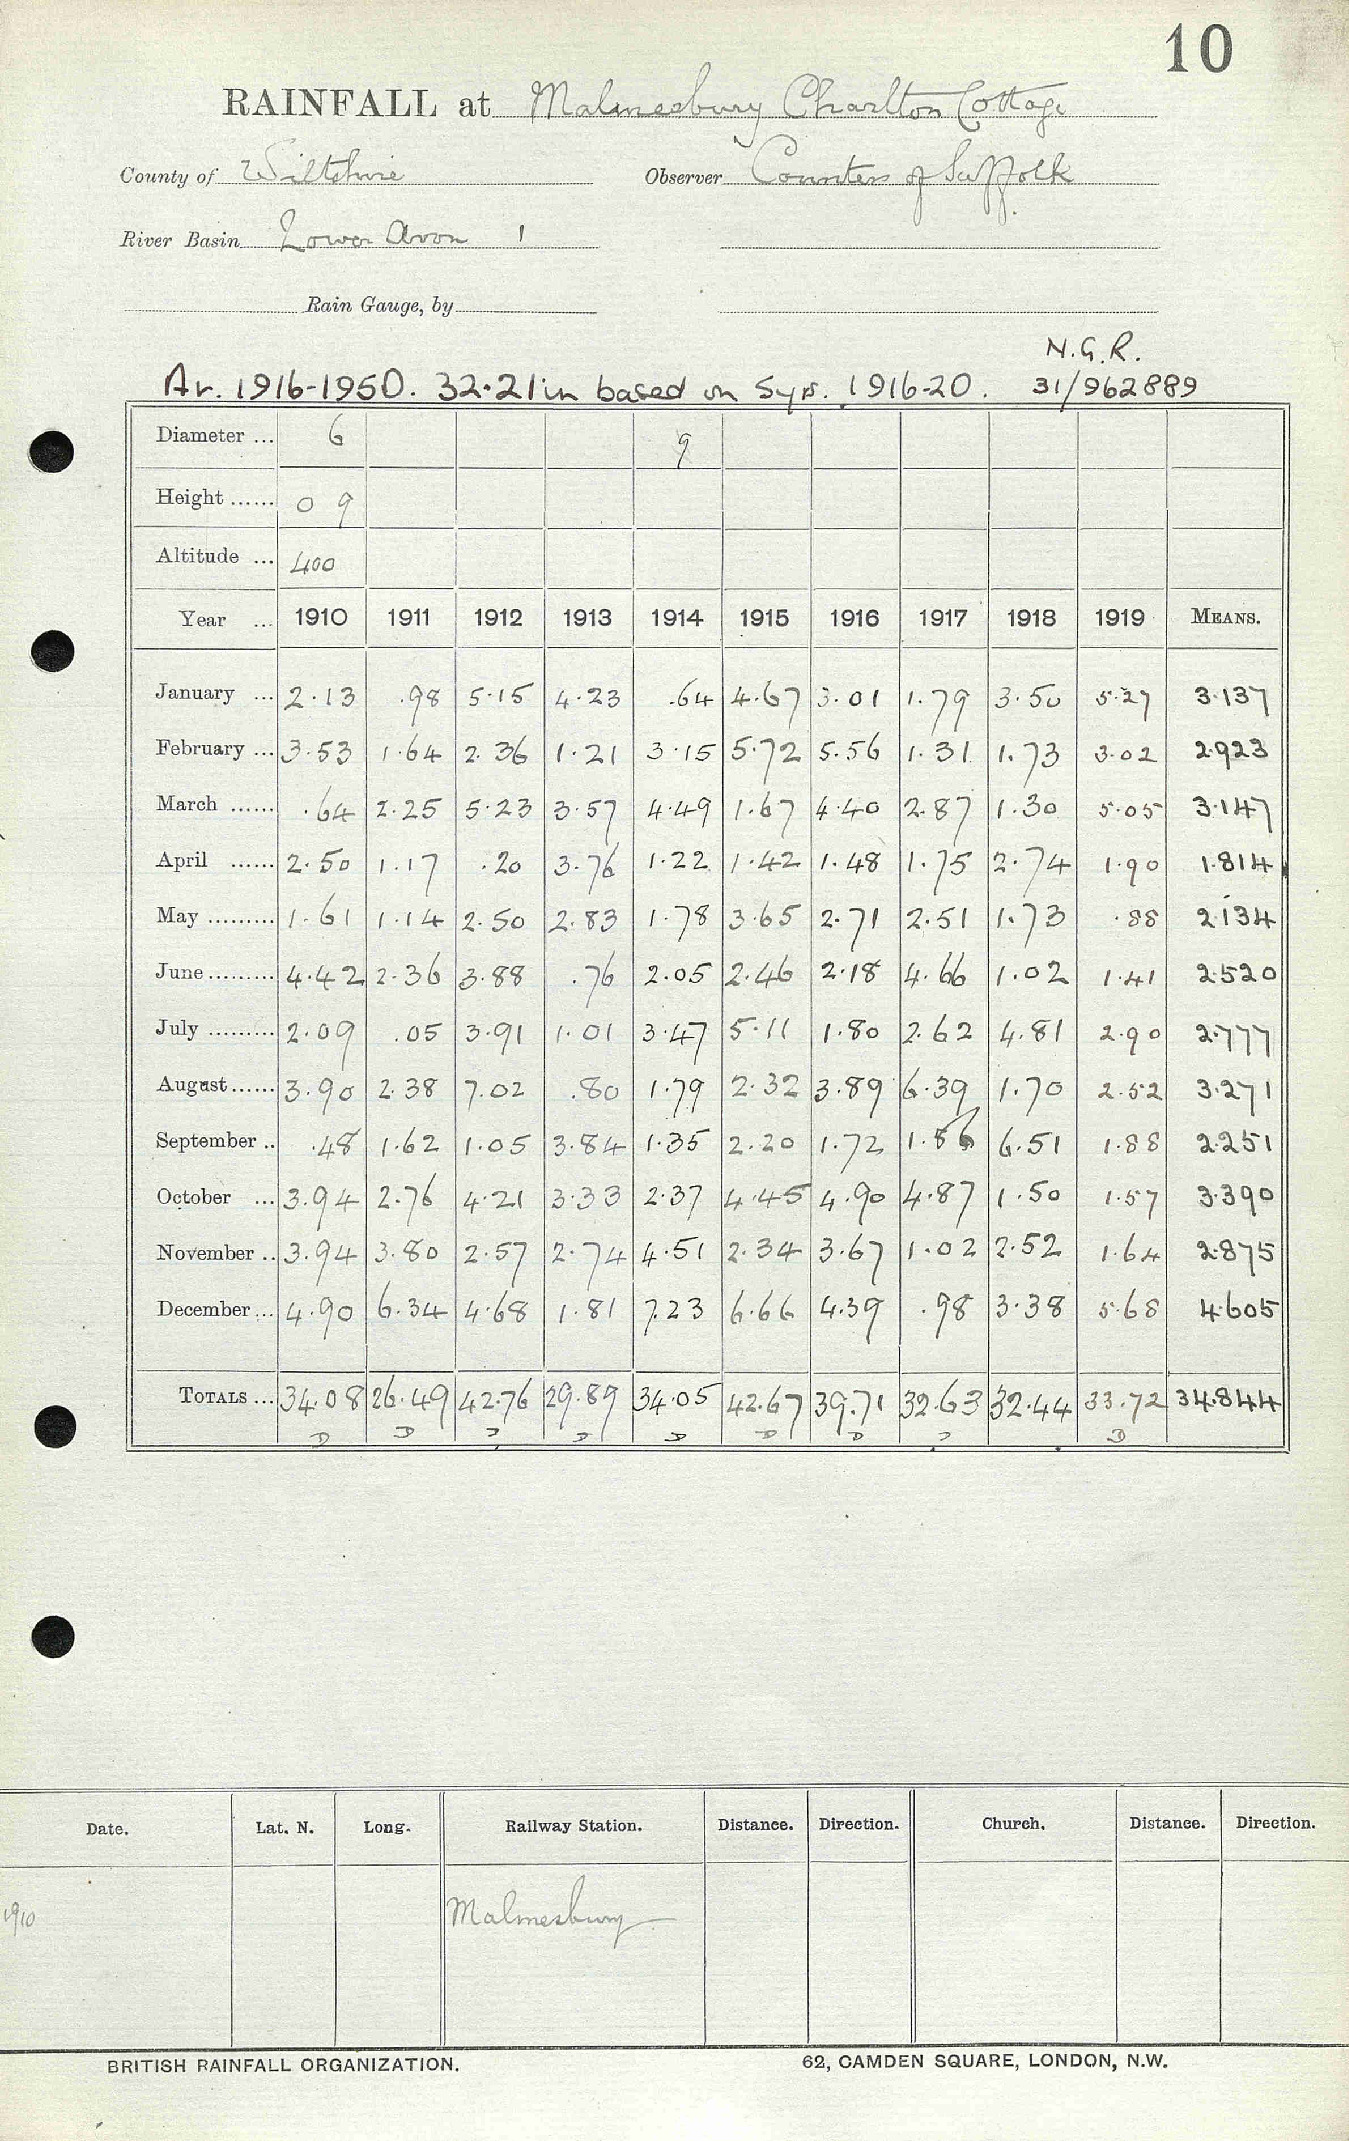 10
RAINFALL at Malmesbury Charlton Cottage
County of Wiltshire Observer Countess of Suffolk
River Basin Lower Avon 1
Rain Gauge, by
N.G.R.
Av. 1916-1950. 32.21 in based on 5 yrs. 1916-20. 31/962889
Diameter ... 6 9
Height ...... 0 9
Altitude ... 400
Year ... 1910 1911 1912 1913 1914 1915 1916 1917 1918 1919 MEANS.
January ... 2.13 .98 5.15 4.23 .64 4.67 3.01 1.79 3.50 5.27 3.137
February ... 3.53 1.64 2.36 1.21 3.15 5.72 5.56 1.31 1.73 3.02 2.923
March ...... .64 2.25 5.23 3.57 4.49 1.67 4.40 2.87 1.30 5.05 3.147
April ...... 2.50 1.17 .20 3.76 1.22 1.42 1.48 1.75 2.74 1.90 1.814
May ......... 1.61 1.14 2.50 2.83 1.78 3.65 2.71 2.51 1.73 .88 2.134
June ......... 4.42 2.36 3.88 .76 2.05 2.46 2.18 4.66 1.02 1.41 2.520
July ......... 2.09 .05 3.91 1.01 3.47 5.11 1.80 2.62 4.81 2.90 2.777
August ...... 3.90 2.38 7.02 .80 1.79 2.32 3.89 6.39 1.70 2.52 3.271
September .. .48 1.62 1.05 3.84 1.35 2.20 1.72 1.86 6.51 1.88 2.251
October ... 3.94 2.76 4.21 3.33 2.37 4.45 4.90 4.87 1.50 1.57 3.390
November .. 3.94 3.80 2.57 2.74 4.51 2.34 3.67 1.02 2.52 1.64 2.875
December ... 4.90 6.34 4.68 1.81 7.23 6.66 4.39 .98 3.38 5.68 4.605
TOTALS ... 34.08 26.49 42.76 29.89 34.05 42.67 39.71 32.63 32.44 33.72 34.844
D D D D D D D D D
Date. Lat. N. Long. Railway Station. Distance. Direction. Church. Distance. Direction.
1910 Malmesbury
BRITISH RAINFALL ORGANIZATION. 62, CAMDEN SQUARE, LONDON, N.W.